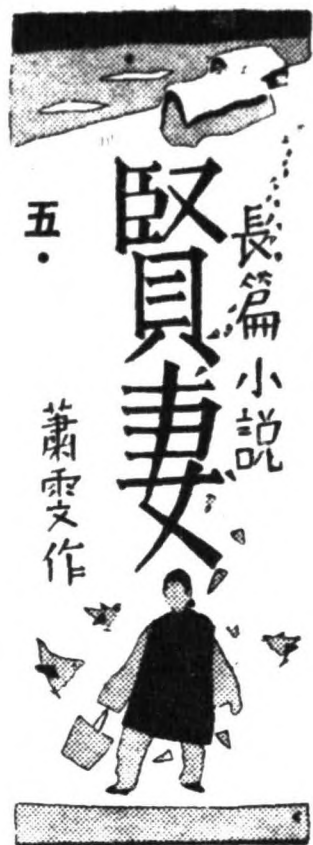 長篇小説
賢妻
五·
蕭雯作